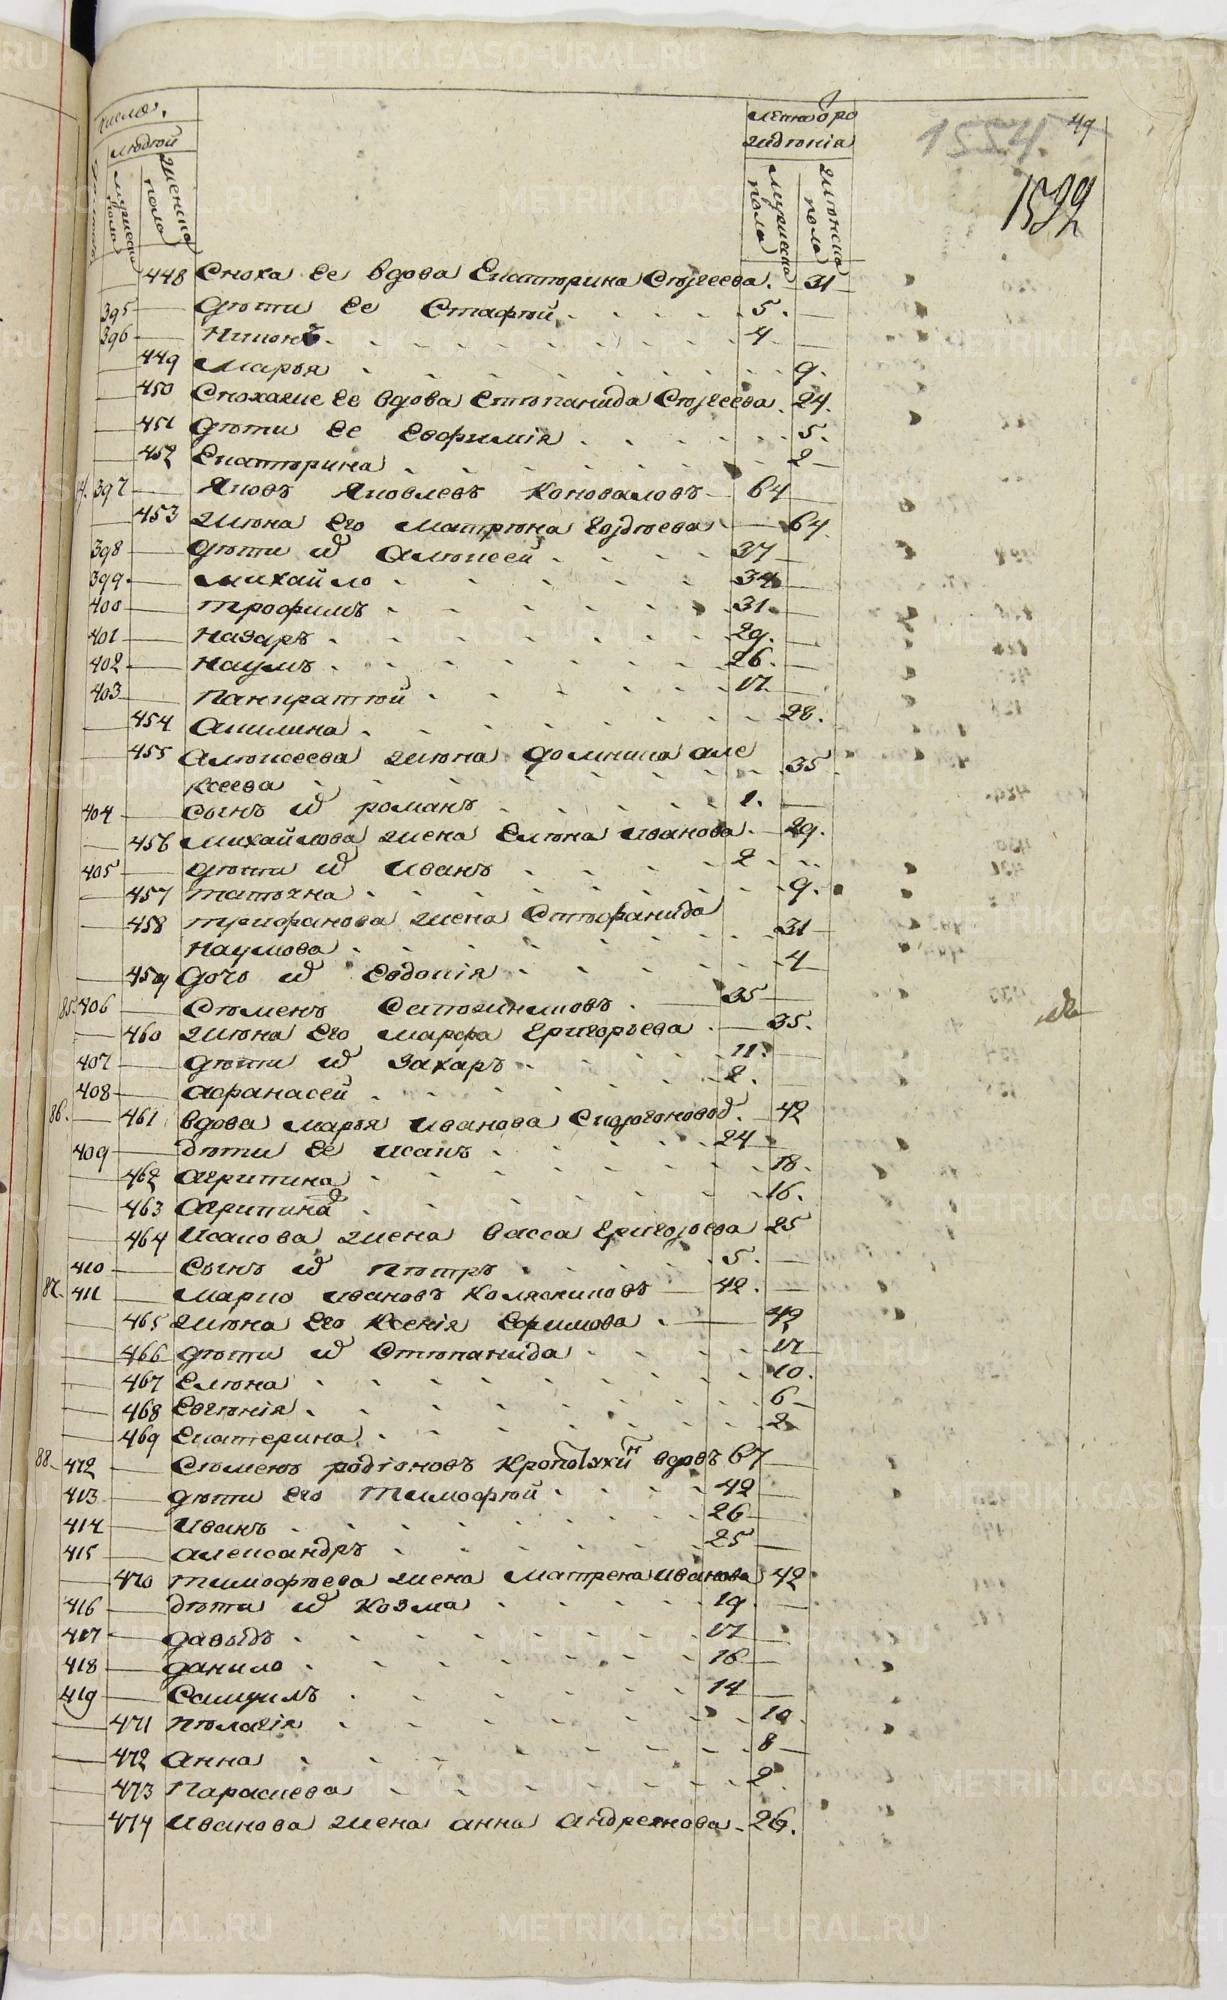 число
людей
мужеска пола
женска пола
лета от ро
ждения
мужеска пола
женска пола
1554.
49
1599
448 Сноха ее вдова Екатерина Сергеева. 31
395 дети ее Стафей 5
396 Никонъ 4
449 Марья 9
450 Сноха же ее вдова Степанида Сергеева 24
451 дети ее Евфимия 5
452 Екатерина 2
84. 397 Яковъ Яковлевъ Коноваловъ 64
453 Жена его Матрена Гордеева 64
398 дети их Алексей 37
399 Михайло 34
400 Трофимъ 31
401 Назаръ 29
402 Наумъ 26
403 Панкратей 17
454 Акилина 28
455 Алексеева жена Домника Але
ксеева 35
404 Сынъ их Романъ 1
456 Михайлова жена Елена Иванова 29
405 дети их Иванъ 2
457 Татьяна 9
458 Трифанова жена Стефанида
Наумова 31
459 Дочь их Евдокия 4
85. 406 Семенъ 35
460 Жена его Марфа Григорьева 35
407 дети их Захаръ 11
408 Афанасей 2
86. 461 Вдова Марья Иванова 42
409 Дети ее Исакъ 24
462 Агрипина 18
463 Агрипина 16
464 Исакова жена Васса Григорьева 25
410 Сынъ их Петръ 5
87. 411 Марко Ивановъ Колясниковъ 42
465 Жена его Ксения Ефимова 42
466 дети их Степанида 17
467 Елена 10
468 Евгения 6
469 Екатерина 2
88 412 Семенъ Родионовъ Кропотухин вдовъ 67
413 дети его Тимофей 42
414 Иванъ 26
415 Александръ 25
470 Тимофеева жена Матрена Иванова 42
416 Дети их Козма 19
417 Давыдъ 17
418 Данило 16
419 Самуилъ 14
471 Пелагия 10
472 Анна 8
473 Парасковья 2
474 Иванова жена Анна Андреянова 26
METRIKI.GASO-URAL.RU